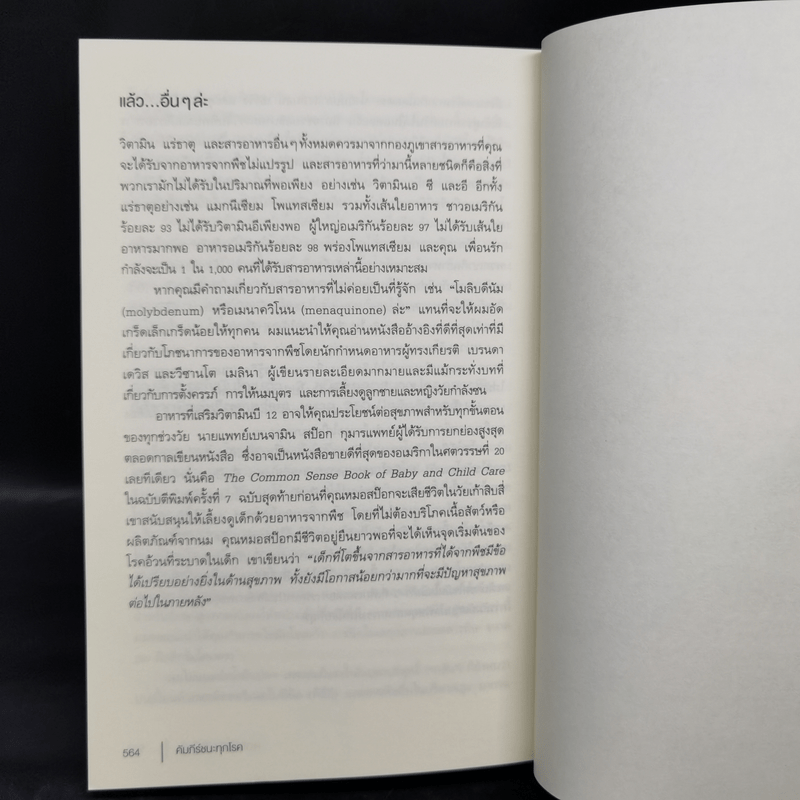 แล้ว...อื่นๆ ล่ะ
วิตามิน แร่ธาตุ และสารอาหารอื่นๆ ทั้งหมดควรมาจากกองภูเขาสารอาหารที่คุณ
จะได้รับจากอาหารจากพืชไม่แปรรูป และสารอาหารที่ว่ามานี้หลายชนิดก็คือสิ่งที่
พวกเรามักไม่ได้รับในปริมาณที่พอเพียง อย่างเช่น วิตามินเอ ซี และอี อีกทั้ง
แร่ธาตุอย่างเช่น แมกนีเซียม โพแทสเซียม รวมทั้งเส้นใยอาหาร ชาวอเมริกัน
ร้อยละ 93 ไม่ได้รับวิตามินอีเพียงพอ ผู้ใหญ่อเมริกันร้อยละ 97 ไม่ได้รับเส้นใย
อาหารมากพอ อาหารอเมริกันร้อยละ 98 พร่องโพแทสเซียม และคุณ เพื่อนรัก
กำลังจะเป็น 1 ใน 1,000 คนที่ได้รับสารอาหารเหล่านี้อย่างเหมาะสม
หากคุณมีคำถามเกี่ยวกับสารอาหารที่ไม่ค่อยเป็นที่รู้จัก เช่น “โมลิบดีนัม
(molybdenum) หรือเมนาควิโนน (menaquinone) ล่ะ” แทนที่จะให้ผมอัด
เกร็ดเล็กเกร็ดน้อยให้ทุกคน ผมแนะนำให้คุณอ่านหนังสืออ้างอิงที่ดีที่สุดเท่าที่มี
เกี่ยวกับโภชนาการของอาหารจากพืชโดยนักกำหนดอาหารผู้ทรงเกียรติ เบรนดา
เดวิส และวีซานโต เมลินา ผู้เขียนรายละเอียดมากมายและมีแม้กระทั่งบทที่
เกี่ยวกับการตั้งครรภ์ การให้นมบุตร และการเลี้ยงดูลูกชายและหญิงวัยกำลังซน
อาหารที่เสริมวิตามินบี 12 อาจให้คุณประโยชน์ต่อสุขภาพสำหรับทุกขั้นตอน
ของทุกช่วงวัย นายแพทย์เบนจามิน สป๊อก กุมารแพทย์ผู้ได้รับการยกย่องสูงสุด
ตลอดกาลเขียนหนังสือ ซึ่งอาจเป็นหนังสือขายดีที่สุดของอเมริกาในศตวรรษที่ 20
เลยทีเดียว นั่นคือ The Common Sense Book of Baby and Child Care
ในฉบับตีพิมพ์ครั้งที่ 7 ฉบับสุดท้ายก่อนที่คุณหมอสป๊อกจะเสียชีวิตในวัยเก้าสิบสี่
เขาสนับสนุนให้เลี้ยงดูเด็กด้วยอาหารจากพืช โดยที่ไม่ต้องบริโภคเนื้อสัตว์หรือ
ผลิตภัณฑ์จากนม คุณหมอสป๊อกมีชีวิตอยู่ยืนยาวพอที่จะได้เห็นจุดเริ่มต้นของ
โรคอ้วนที่ระบาดในเด็ก เขาเขียนว่า “เด็กที่โตขึ้นจากสารอาหารที่ได้จากพืชมีข้อ
ได้เปรียบอย่างยิ่งในด้านสุขภาพ ทั้งยังมีโอกาสน้อยกว่ามากที่จะมีปัญหาสุขภาพ
ต่อไปในภายหลัง”
564 | คัมภีร์ชนะทุกโรค